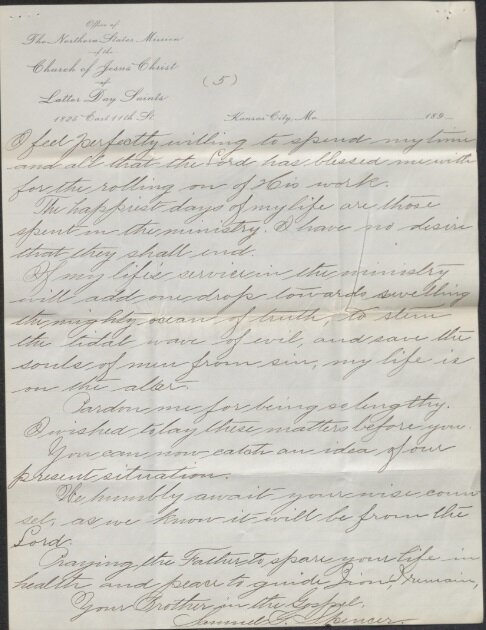 Office of
The Northern States Mission
of the
Church of Jesus Christ
of
Latter Day Saints
(5)
1825 East 11th St. Kansas City, Mo. 189
I feel perfectly willing to spend my time
and all that the Lord has blessed me with
for the rolling on of His work.
The happiest days of my life are those
spent in the ministry. I have no desire
that they shall end.
If my life's service in the ministry
will add one drop towards swelling
the mighty ocean of truth, to stem
the tidal wave of evil, and save the
souls of men from sin, my life is
on the alter.
Pardon me for being so lengthy.
I wished to lay these matters before you.
You can now catch an idea of our
present situation.
We humbly await your wise coun
sel, as we know it will be from the
Lord.
Praying the Father to spare your life in
health and peace to guide Zion, I remain,
Your Brother in the Gospel,
Samuel G. Spencer